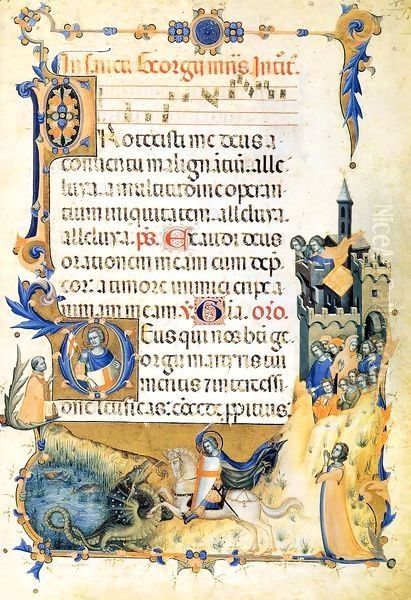 In sancti Georgii mris Introit.
Protexisti me deus a
conuentu malignatiũ. alle
luya. a multitudine operan
tium iniquitatem. alleluya.
alleluya. ps. Exaudi deus
orationem meam cum dep̃
cor: a timore inimici eripe a
nimam meam. v. Glia. oro.
Deus qui nos bti ge
orgii martyris tui
meritis et intercessi
one letificas: concede ppitius